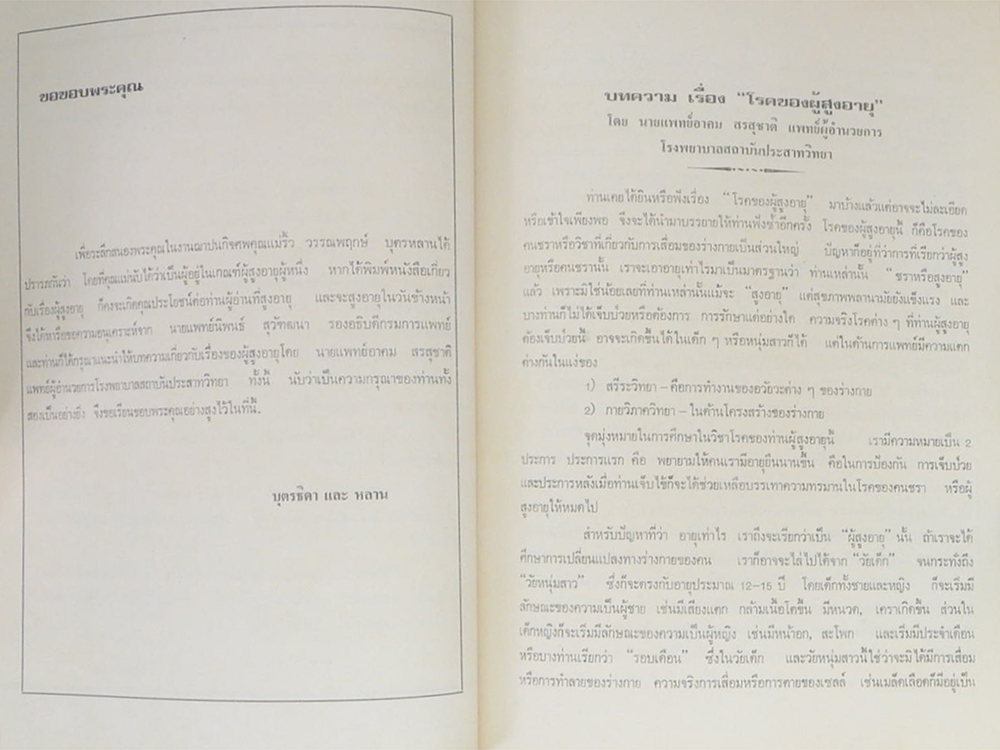 ขอขอบพระคุณ
เพื่อระลึกสนองพระคุณในงานฌาปนกิจศพคุณแม่ริ้ว วรรณพฤกษ์ บุตรหลานได้
ปรารภกันว่า โดยที่คุณแม่นับได้ว่าเป็นผู้อยู่ในเกณฑ์ผู้สูงอายุผู้หนึ่ง หากได้พิมพ์หนังสือเกี่ยว
กับเรื่องผู้สูงอายุ ก็คงจะเกิดคุณประโยชน์ต่อท่านผู้อ่านที่สูงอายุ และจะสูงอายุในวันข้างหน้า
จึงได้หารือขอความอนุเคราะห์จาก นายแพทย์นิพนธ์ สุวัฒนา รองอธิบดีกรมการแพทย์
และท่านก็ได้กรุณาแนะนำให้บทความเกี่ยวกับเรื่องของผู้สูงอายุโดย นายแพทย์อาคม สรสุชาติ
แพทย์ผู้อำนวยการโรงพยาบาลสถาบันประสาทวิทยา ทั้งนี้ นับว่าเป็นความกรุณาของท่านทั้ง
สองเป็นอย่างยิ่ง จึงขอเรียนขอบพระคุณอย่างสูงไว้ในที่นี้.
บุตรธิดา และ หลาน
บทความ เรื่อง "โรคของผู้สูงอายุ"
โดย นายแพทย์อาคม สรสุชาติ แพทย์ผู้อำนวยการ
โรงพยาบาลสถาบันประสาทวิทยา
ท่านเคยได้ยินหรือฟังเรื่อง "โรคของผู้สูงอายุ" มาบ้างแล้วแต่อาจจะไม่ละเอียด
หรือเข้าใจเพียงพอ จึงจะได้นำมาบรรยายให้ท่านฟังซ้ำอีกครั้ง โรคของผู้สูงอายุนี้ ก็คือโรคของ
คนชราหรือวิชาที่เกี่ยวกับการเสื่อมของร่างกายเป็นส่วนใหญ่ ปัญหาก็อยู่ที่ว่าการที่เรียกว่าผู้สูง
อายุหรือคนชรานั้น เราจะเอาอายุเท่าไรมาเป็นมาตรฐานว่า ท่านเหล่านั้น "ชราหรือสูงอายุ"
แล้ว เพราะมิใช่น้อยเลยที่ท่านเหล่านั้นแม้จะ "สูงอายุ" แต่สุขภาพพลานามัยยังแข็งแรง และ
บางท่านก็ไม่ได้เจ็บป่วยหรือต้องการ การรักษาแต่อย่างใด ความจริงโรคต่าง ๆ ที่ท่านผู้สูงอายุ
ต้องเจ็บป่วยนี้ อาจจะเกิดขึ้นได้ในเด็ก ๆ หรือหนุ่มสาวก็ได้ แต่ในด้านการแพทย์มีความแตก
ต่างกันในแง่ของ
1) สรีระวิทยา – คือการทำงานของอวัยวะต่าง ๆ ของร่างกาย
2) กายวิภาควิทยา – ในด้านโครงสร้างของร่างกาย
จุดมุ่งหมายในการศึกษาในวิชาโรคของท่านผู้สูงอายุนี้ เรามีความหมายเป็น 2
ประการ ประการแรก คือ พยายามให้คนเรามีอายุยืนนานขึ้น คือในการป้องกัน การเจ็บป่วย
และประการหลังเมื่อท่านเจ็บไข้ก็จะได้ช่วยเหลือบรรเทาความทรมานในโรคของคนชรา หรือผู้
สูงอายุให้หมดไป
สำหรับปัญหาที่ว่า อายุเท่าไร เราถึงจะเรียกว่าเป็น "ผู้สูงอายุ" นั้น ถ้าเราจะได้
ศึกษาการเปลี่ยนแปลงทางร่างกายของคน เราก็อาจจะไล่ไปได้จาก "วัยเด็ก" จนกระทั่งถึง
"วัยหนุ่มสาว" ซึ่งก็จะตรงกับอายุประมาณ 12–15 ปี โดยเด็กทั้งชายและหญิง ก็จะเริ่มมี
ลักษณะของความเป็นผู้ชาย เช่นมีเสียงแตก กล้ามเนื้อโตขึ้น มีหนวด, เคราเกิดขึ้น ส่วนใน
เด็กหญิงก็จะเริ่มมีลักษณะของความเป็นผู้หญิง เช่นมีหน้าอก, สะโพก และเริ่มมีประจำเดือน
หรือบางท่านเรียกว่า "รอบเดือน" ซึ่งในวัยเด็ก และวัยหนุ่มสาวนี้ใช่ว่าจะมิได้มีการเสื่อม
หรือการทำลายของร่างกาย ความจริงการเสื่อมหรือการตายของเซลล์ เช่นเม็ดเลือดก็มีอยู่เป็น